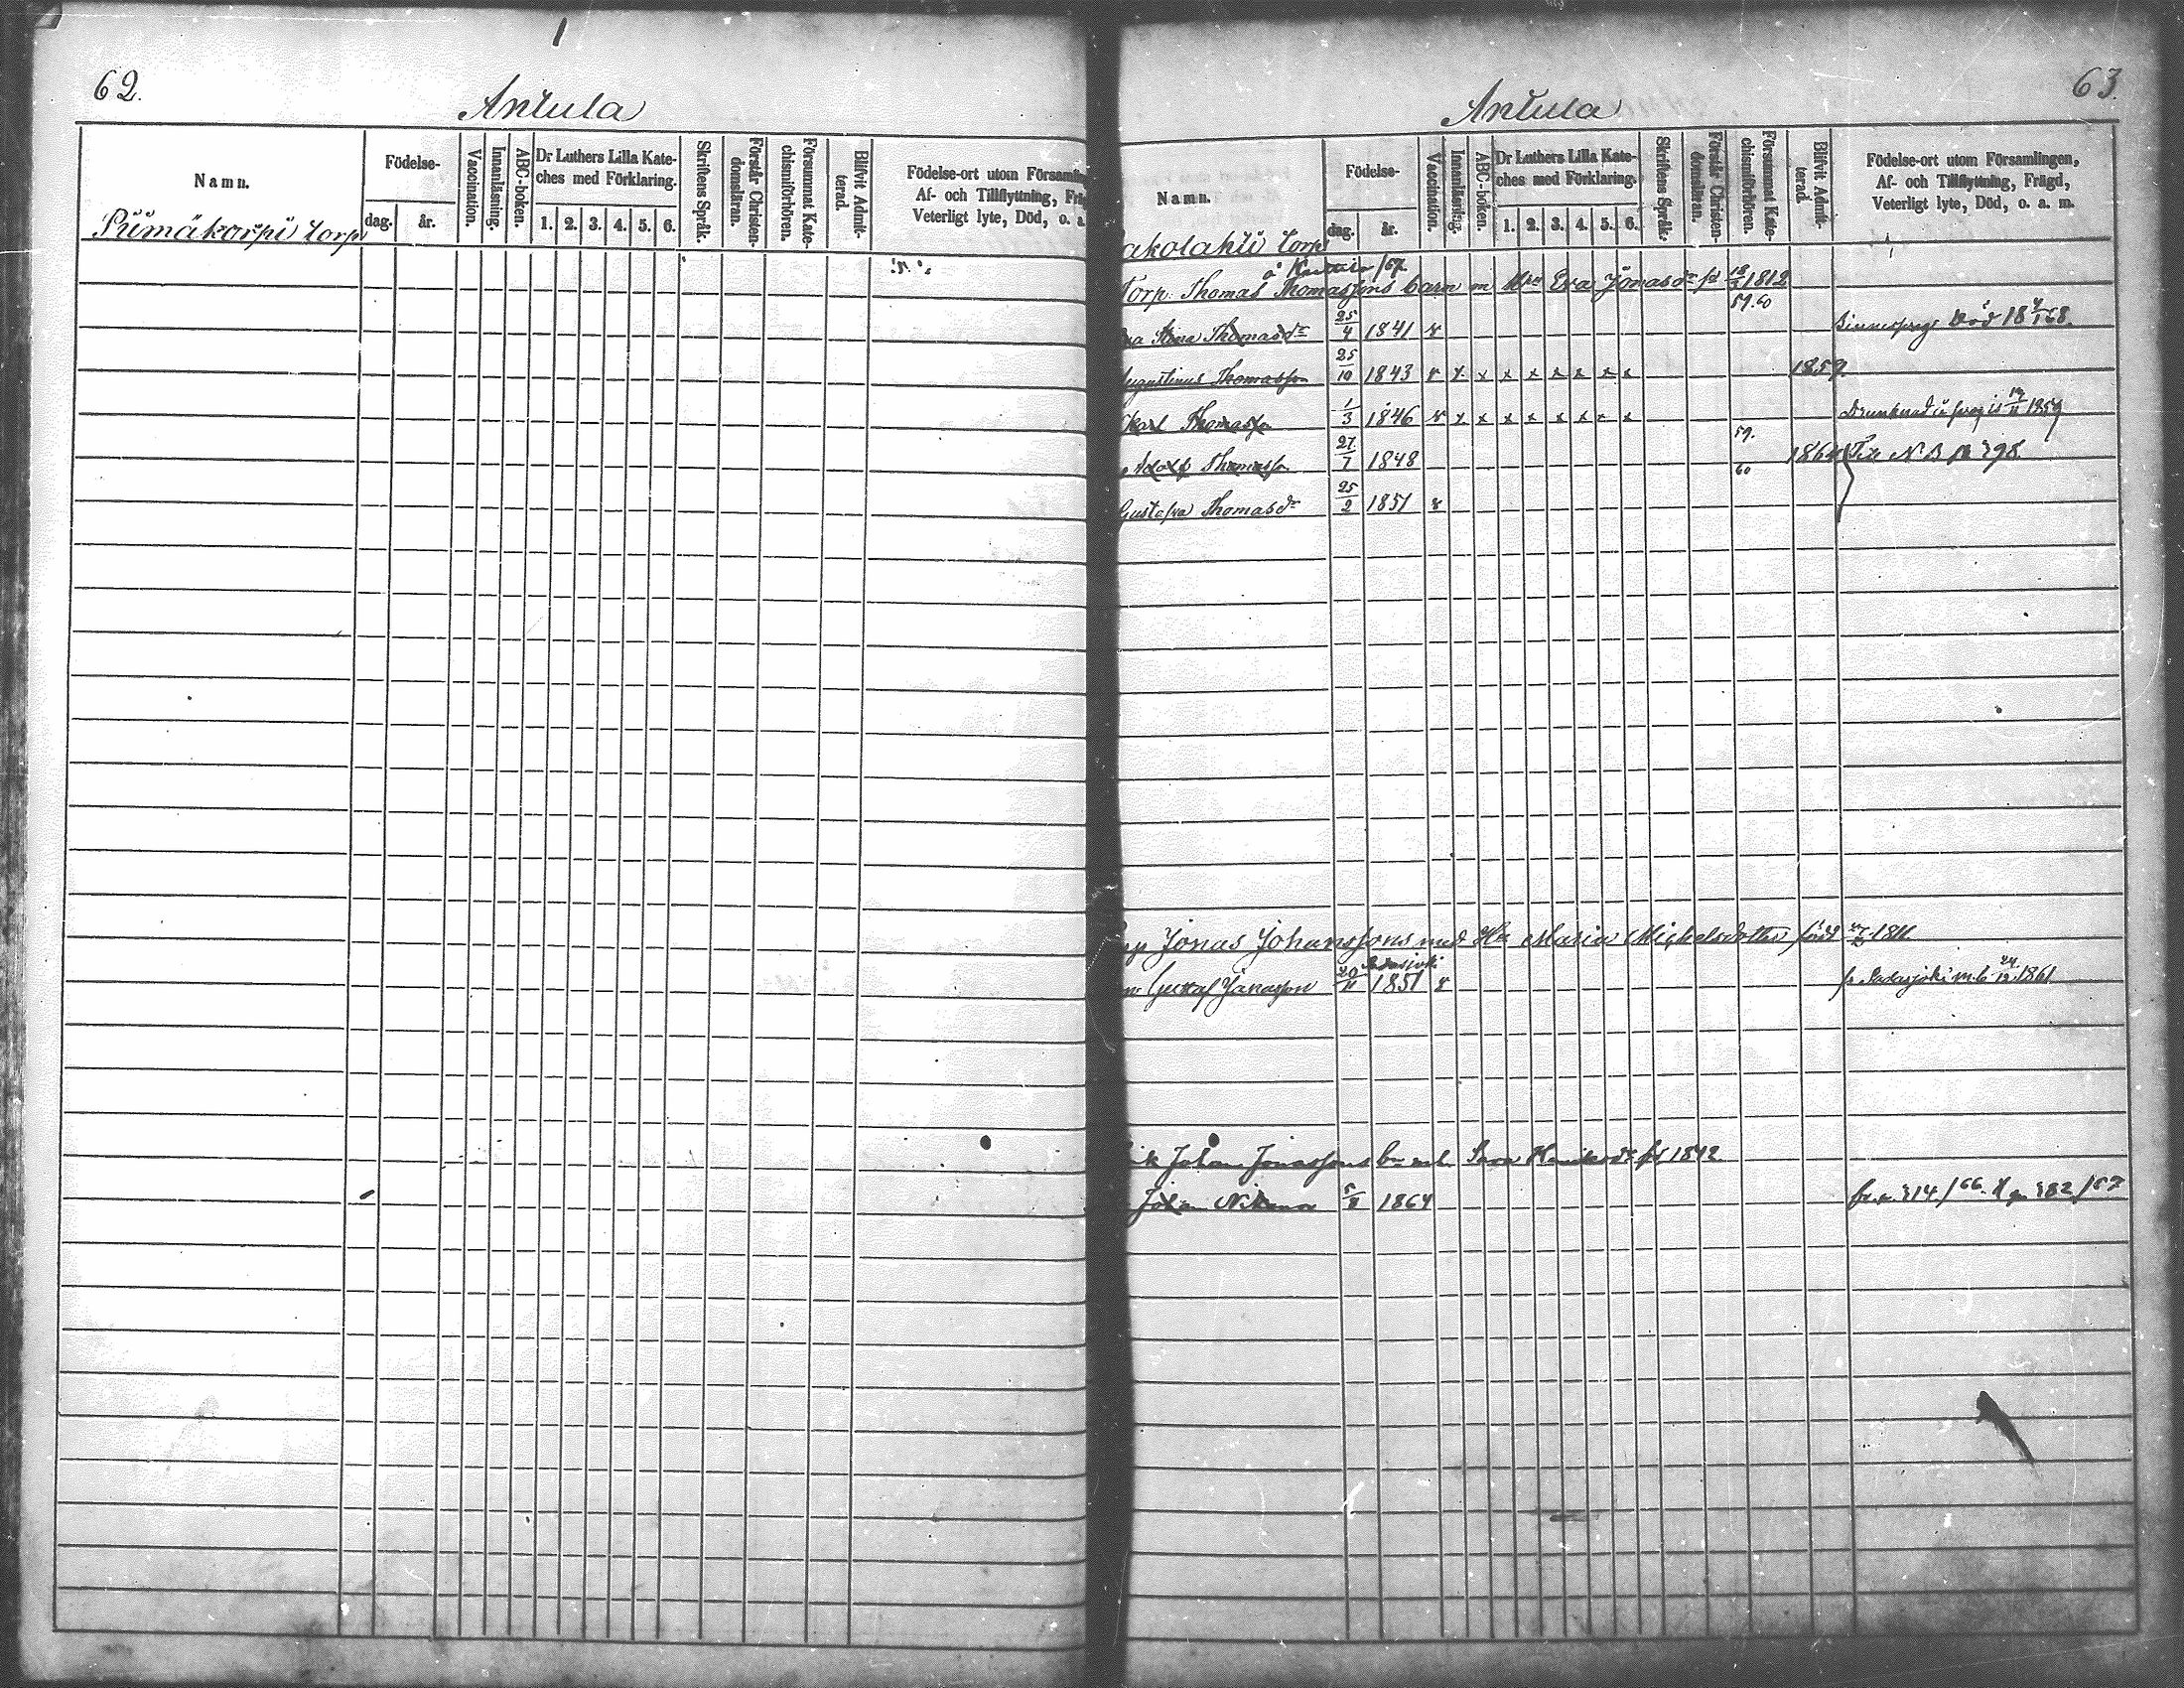 62.
Antula
Namn.
Födelse-
dag.
år.
Vaccination.
Innanläsning.
ABC-boken.
Dr Luthers Lilla Kate-
ches med Förklaring.
1. 2. 3. 4. 5. 6.
Skriftens Språk.
Förstår Christen-
domsläran.
Försummat Kate-
chismiförhören.
Blifvit Admit-
terad.
Födelse-ort utom Församlin
Af- och Tillflyttning, Frä
Veterligt lyte, Död, o. a.
Piimäkorpi torp
63.
Antula
Namn.
Födelse-
dag.
år.
Vaccination.
Innanläsning.
ABC-boken.
Dr Luthers Lilla Kate-
ches med Förklaring.
1. 2. 3. 4. 5. 6.
Skriftens Språk.
Förstår Christen-
domsläran.
Försummat Kate-
chismiförhören.
Blifvit Admit-
terad.
Födelse-ort utom Församlingen,
Af- och Tillflyttning, Frägd,
Veterligt lyte, Död, o. a. m.
akolahti torp
Torp. Thomas Thomassons barn m Eva Jonasdr 1812
59.60
Thomasdr 25/4 1841 v Död 18 4/1 68.
Augustinus Thomasson 25/10 1843 v x x x x x x x x 1859
Karl Thomasson 1/3 1846 v x x x x x x x x 1859
Adolf Thomasson 27/7 1848 59. 60 1864 Till N.B. 298
Gustafva Thomasdr 25/2 1851 v
Jonas Johanssons med Hu Maria Michelsdotter född 1811.
Padasjoki
Gustaf Jonasson 20/11 1851 v fr Padasjoki m.b. 24/12 1861
Johan Jonassons Henriksdr 1842
Johan 5/11 1864 314/66. 382/67